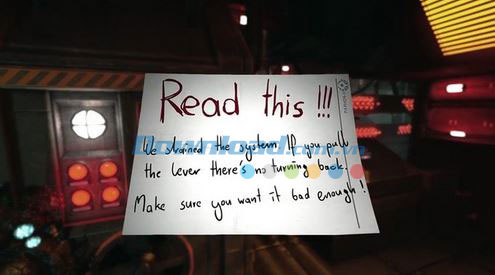 Read this !!!
We strained the system. If you pull
the lever there's no turning back.
Make sure you want it bad enough!
Download.com.vn